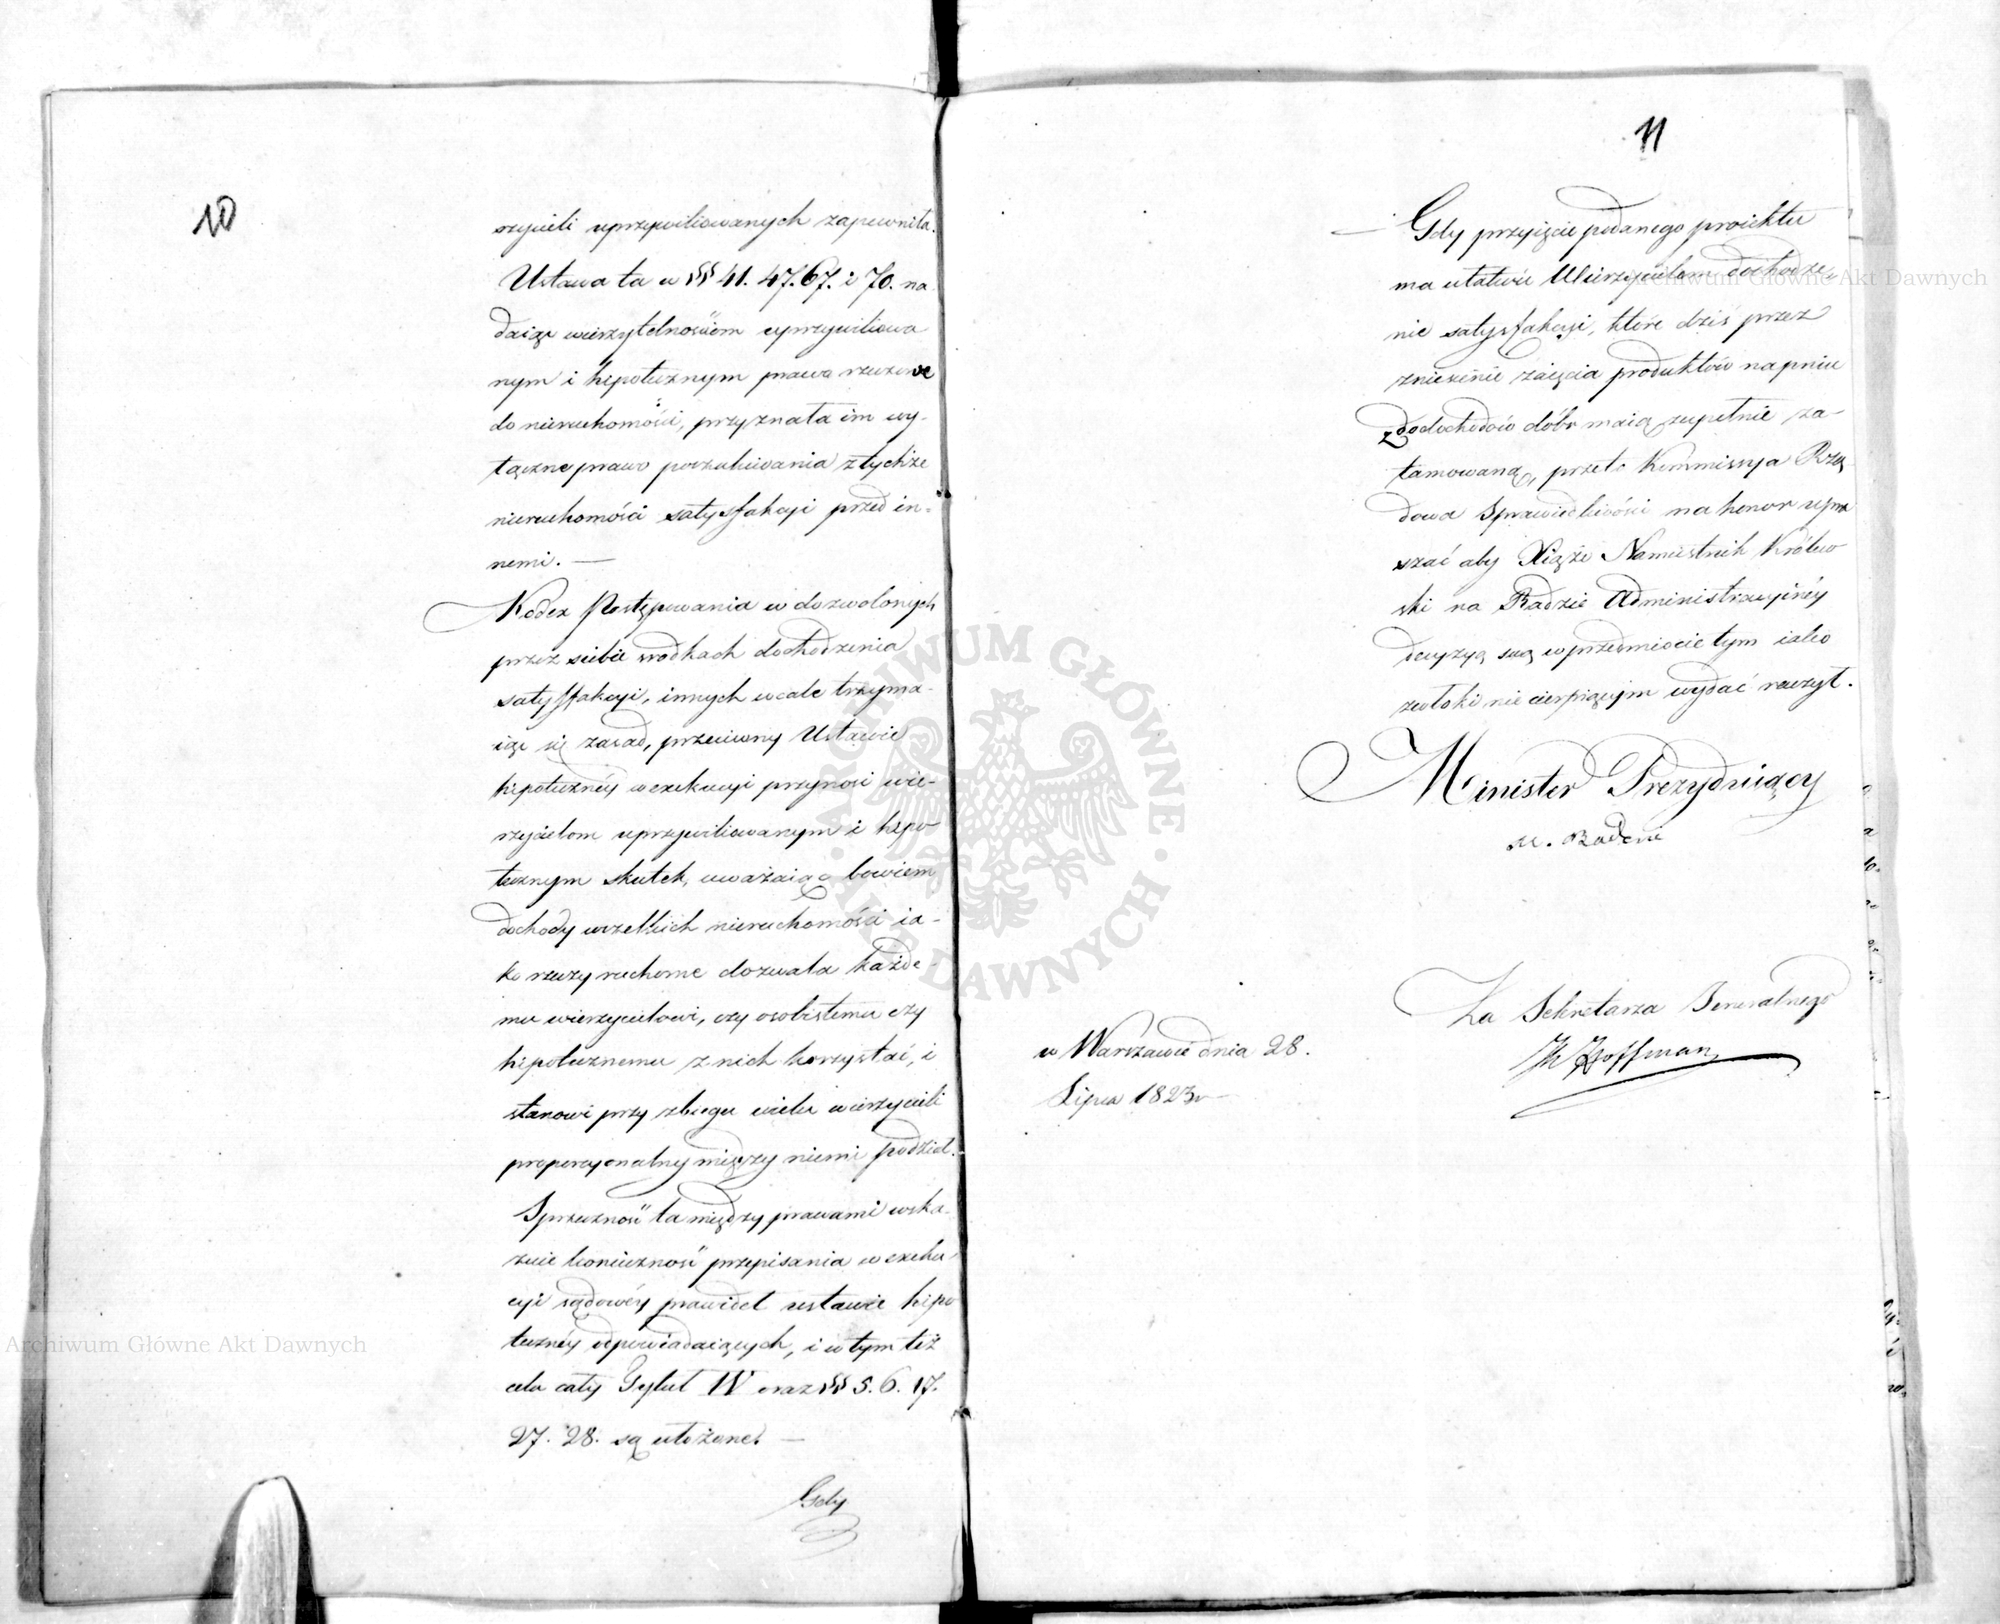 10
rzycieli uprzywiliowanych zapewniła.
Ustawa ta w §§ 41. 47. 67. i 70. na
daiąc wierzytelnościom uprzywiliowa
nym i hipotecznym prawa rzeczowe
do nieruchomości, przyznała im wy-
łączne prawo poszukiwania z tychże
nieruchomości satysfakcyi przed in-
nemi. —
Kodex Postępowania w dozwolonych
przez siebie srodkach dochodzenia
satysfakcyi, innych wcale trzyma-
iąc się zasad, przeciwny Ustawie
hipoteczney w exekucyi przynosi wie-
rzycielom uprzywiliowanym i hipo
tecznym skutek, uważaiąc bowiem
dochody wszelkich nieruchomości ia-
ko rzeczy ruchome dozwala każde-
mu wierzycielowi, czy osobistemu czy
hipotecznemu z nich korzystać, i
stanowi przy zbiegu wielu wierzycieli
proporcyonalny między niemi podział.
Sprzeczność ta między prawami wska-
zuie konieczność przepisania w exeku-
cyi sądowéy prawideł ustawie hipo
teczney odpowiadaiących, i w tym też
celu cały Tytuł IV oraz §§ 5. 6. 17.
27. 28. są ułożone. —
Gdy
11
— Gdy przyięcie podanego proiektu
ma ułatwić Wierzycielom dochodze-
nie satysfakcyi, które dziś przez
zniesienie zaięcia produktów na pniu
z dochodów dóbr maią zupełnie za-
tamowaną, przeto Kommissya Rzą
dowa Sprawiedliwości ma honor upra
szać aby Xiąże Namiestnik Królew
ski na Radzie Administracyiney
decyzyą swą w przedmiocie tym iako
zwłoki nie cierpiącym wydać raczył.
Minister Prezyduiący
M. Badeni
Za Sekretarza Jeneralnego
Hoffman
w Warszawie dnia 28.
Lipca 1823 r
Archiwum Główne Akt Dawnych
Archiwum Główne Akt Dawnych
ARCHIWUM GŁÓWNE · AKT DAWNYCH ·